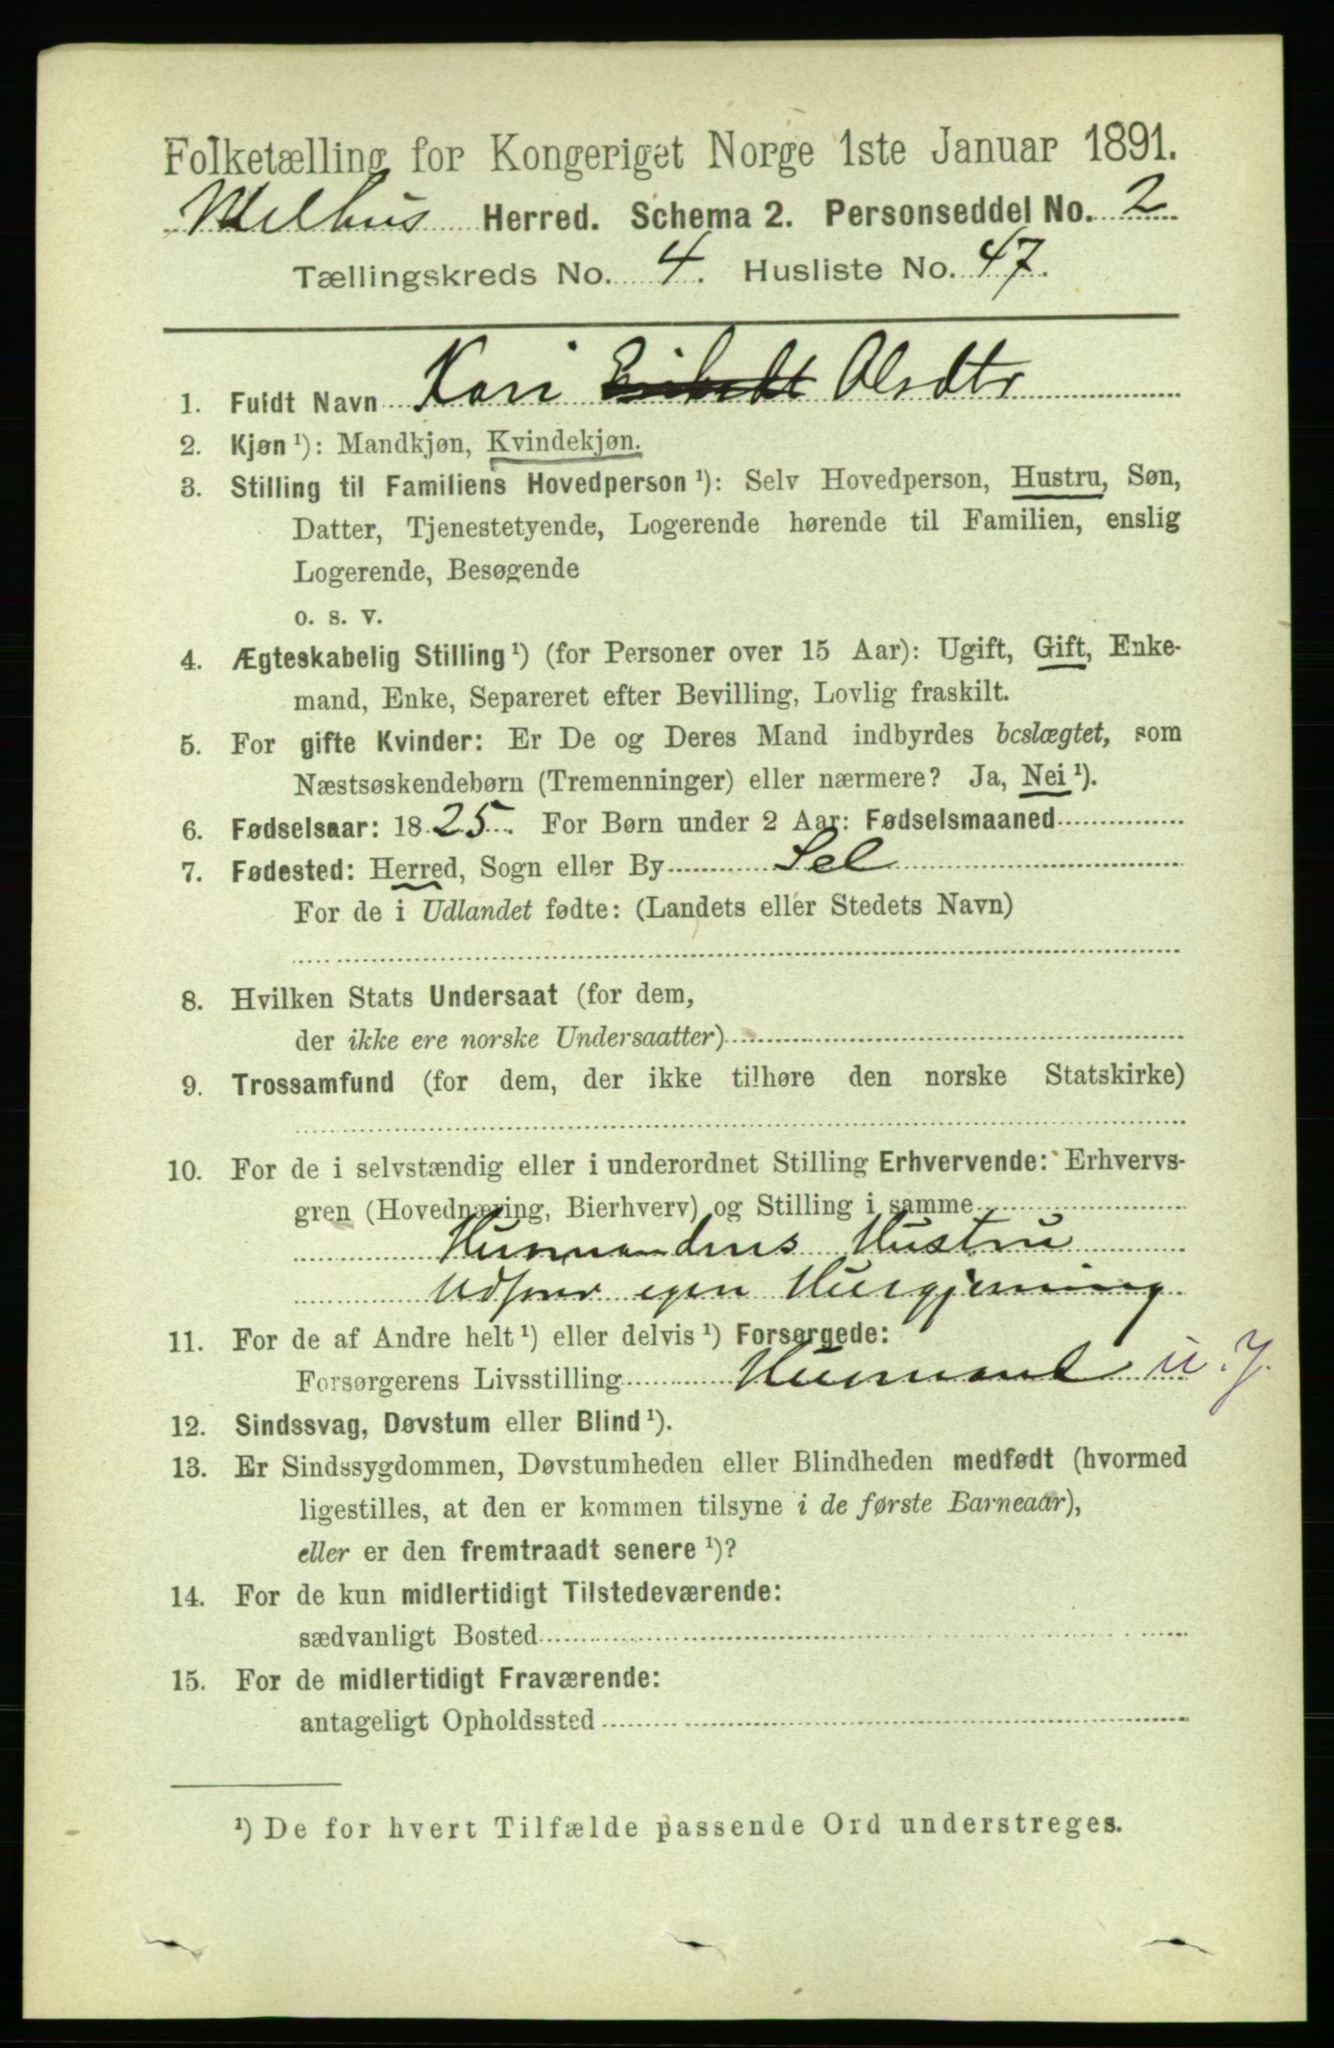 Folketælling for Kongeriget Norge 1ste Januar 1891.
Melhus Herred. Schema 2. Personseddel No. 2
Tællingskreds No. 4. Husliste No. 47.
1. Fuldt Navn Kari Olsdtr
2. Kjøn ¹): Mandkjøn, Kvindekjøn.
3. Stilling til Familiens Hovedperson ¹): Selv Hovedperson, Hustru, Søn,
Datter, Tjenestetyende, Logerende hørende til Familien, enslig
Logerende, Besøgende
o. s. v.
4. Ægteskabelig Stilling ¹) (for Personer over 15 Aar): Ugift, Gift, Enke-
mand, Enke, Separeret efter Bevilling, Lovlig fraskilt.
5. For gifte Kvinder: Er De og Deres Mand indbyrdes beslægtet, som
Næstsøskendebørn (Tremenninger) eller nærmere? Ja, Nei ¹).
6. Fødselsaar: 1825. For Børn under 2 Aar: Fødselsmaaned
7. Fødested: Herred, Sogn eller By Sel
For de i Udlandet fødte: (Landets eller Stedets Navn)
8. Hvilken Stats Undersaat (for dem,
der ikke ere norske Undersaatter)
9. Trossamfund (for dem, der ikke tilhøre den norske Statskirke)
10. For de i selvstændig eller i underordnet Stilling Erhvervende: Erhvervs-
gren (Hovednæring, Bierhverv) og Stilling i samme
Husmandens Hustru
Udfører egen Husgjerning
11. For de af Andre helt ¹) eller delvis ¹) Forsørgede:
Forsørgerens Livsstilling Husmand u. J.
12. Sindssvag, Døvstum eller Blind ¹).
13. Er Sindssygdommen, Døvstumheden eller Blindheden medfødt (hvormed
ligestilles, at den er kommen tilsyne i de første Barneaar),
eller er den fremtraadt senere ¹)?
14. For de kun midlertidigt Tilstedeværende:
sædvanligt Bosted
15. For de midlertidigt Fraværende:
antageligt Opholdssted
¹) De for hvert Tilfælde passende Ord understreges.